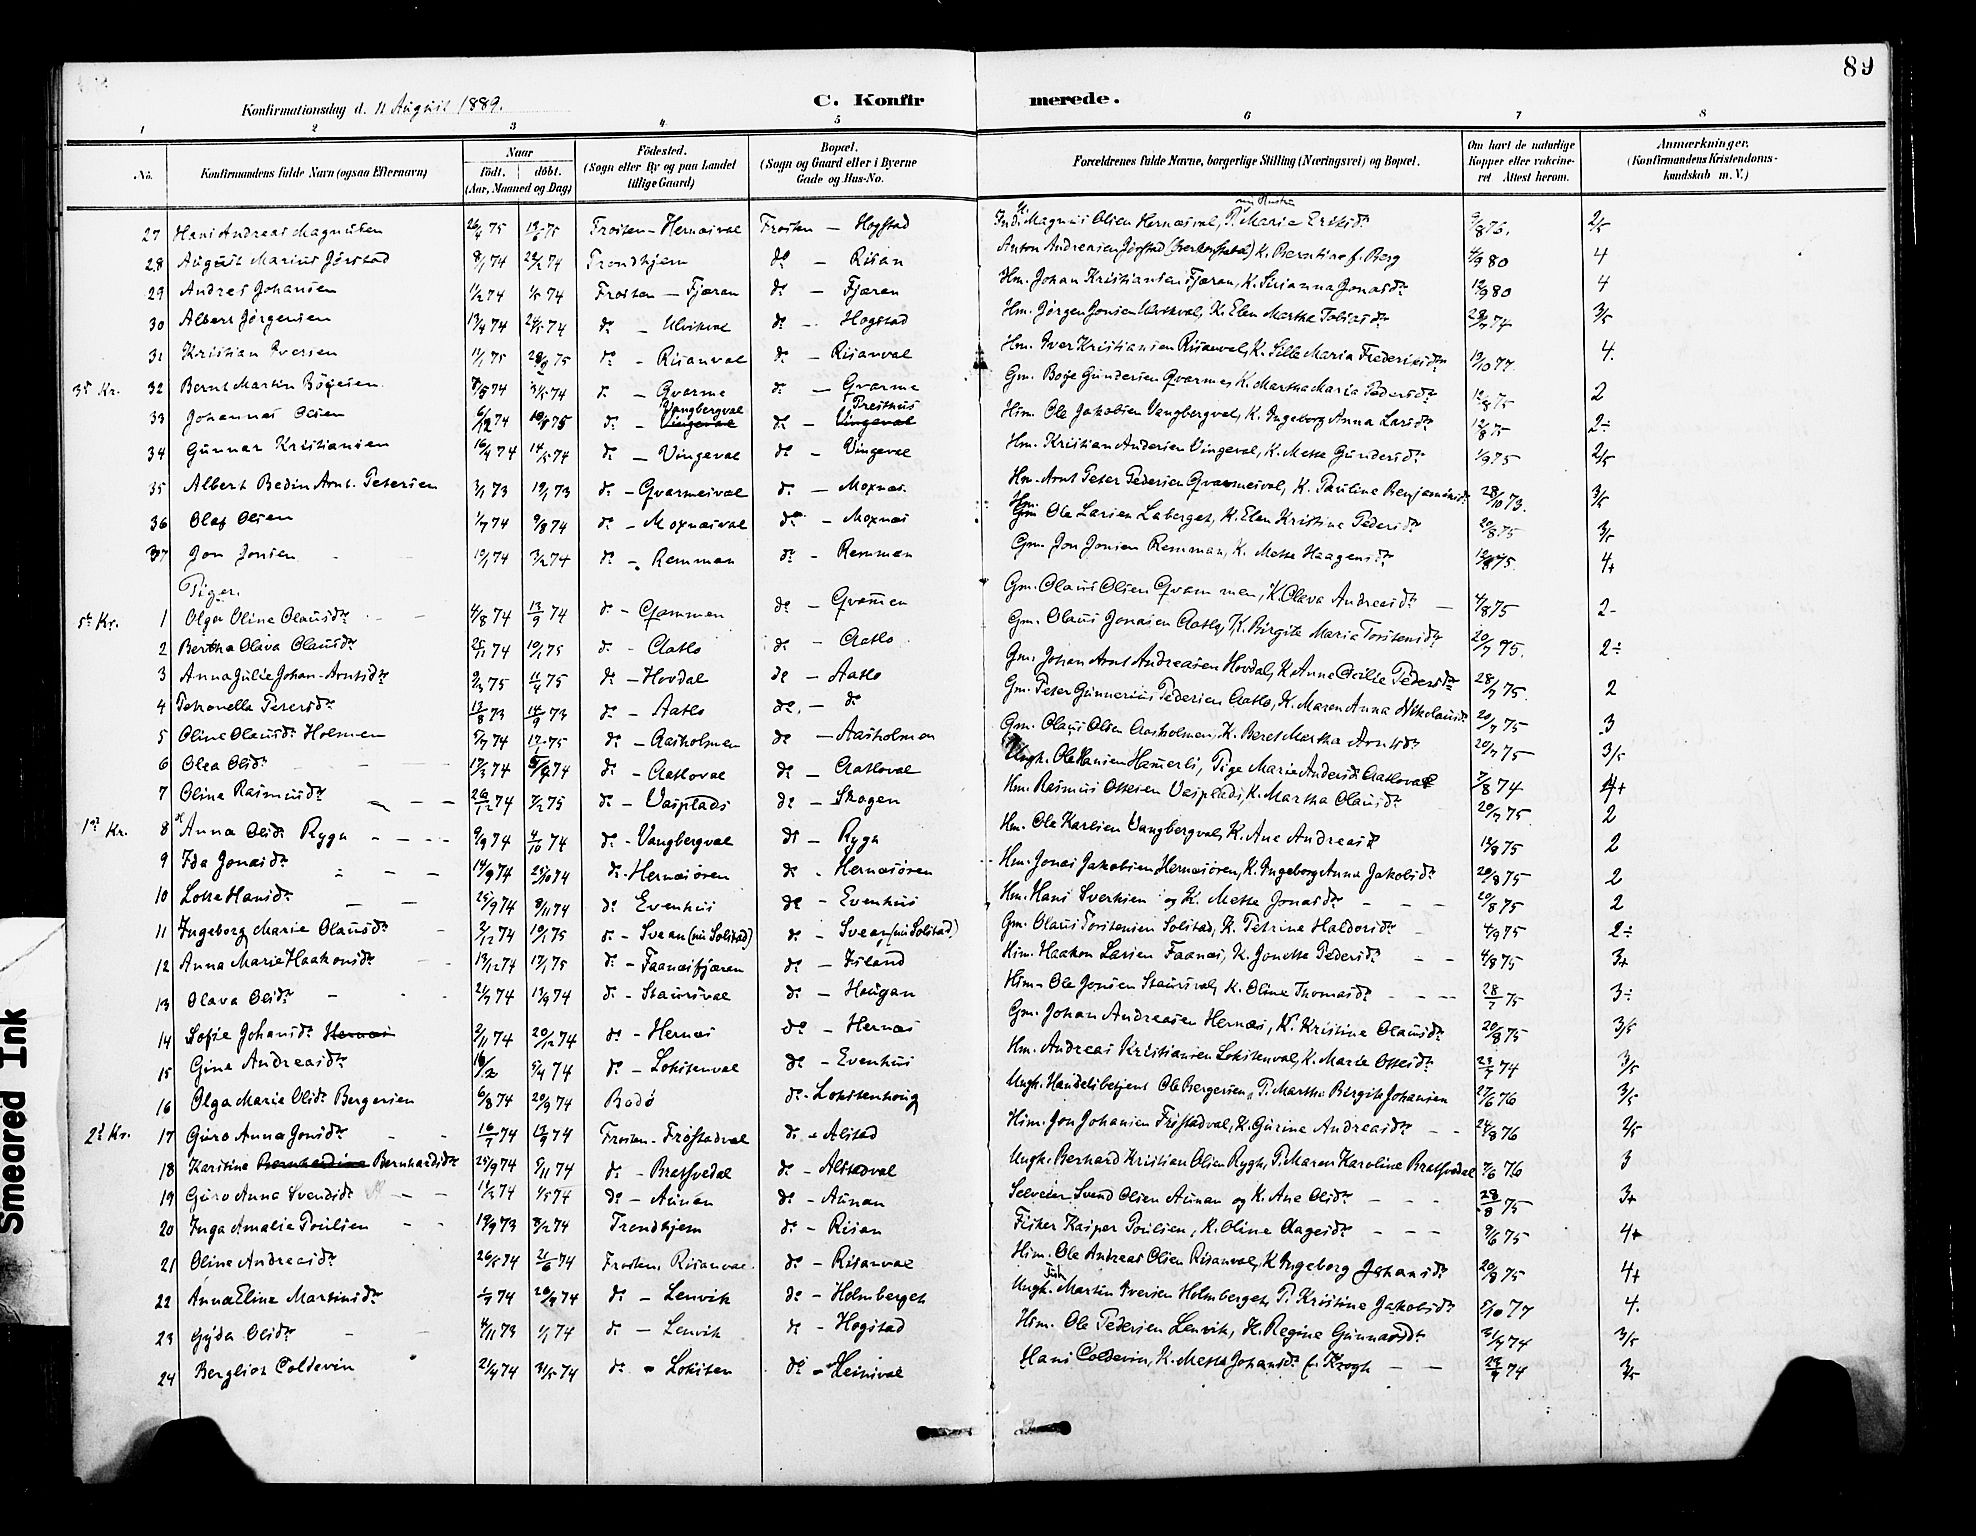 89
Konfirmationsdag d. 11 August 1889.
C. Konfirmerede.
1 2 3 4 5 6 7 8
No. Konfirmandens fulde Navn (ogsaa Efternavn) Naar födt. döbt. (Aar, Maaned og Dag) Födested. (Sogn eller By og paa Landet tillige Gaard) Bopæl. (Sogn og Gaard eller i Byerne Gade og Hus-No. Forældrenes fulde Navne, borgerlige Stilling (Næringsvei) og Bopæl. Om havt de naturlige Kopper eller vaccineret. Attest herom. Anmærkninger. (Konfirmandens Kristendomskundskab m. V.)
27 Hans Andreas Magnusen 26/4 75 Frosten - Hernæsval Frosten - Hogstad Magnus Olsen Hernæsval, Marie Eriksdr 2/5
28 August Marius Jørstad 8/1 74 22/2 74 Trondhjem do - Risan Anton Andreasen Jørstad K. Berntine f. Berg 4/9 80 4
29 Andres Johansen 11/2 74 1/5 74 Frosten - Fjæran do - Fjæran Hm. Johan Kristiansen Fjæran, K. Sirianna Jonasdr 12/9 80 4
30 Albert Jørgensen 13/4 74 24/5 74 do - Ulvikval do - Hogstad Hm. Jørgen Jonsen Ulvikval, K. Elen Martha Tobiasdr 3/5
31 Kristian Iversen 11/1 75 28/2 75 do - Risanval do - Risanval Hm. Iver Kristiansen Risanval, K. Sille Maria Frederiksdr 19/10 77 4.
3die Kr. 32 Bernt Martin Böijesen 31/5 74 do - Qvarme do - Qvarme Gm. Boije Gundersen Qvarme, K. Martha Maria Pedersdr 12/8 75 2
33 Johannes Olsen 6/12 74 do - Vangbergval Vingeval do - Presthus Vingeval Hm. Ole Jakobsen Vangbergval, K. Ingeborg Anna Larsdr 12/8 75 2÷
34 Gunnar Kristiansen 16/4 74 14/5 74 do - Vingeval do - Vingeval Hm. Kristian Andersen Vingeval, K. Mette Gundersdr 1/9 75 2/5
35 Albert Bedin Arnt. Petersen 3/1 73 19/1 73 do - Qvarmesval do - Moxnæs Hm. Arnt Peter Pedersen Qvarmesval, K. Pauline Benjaminsdr 28/10 73. 3/5
36 Olaf Olsen 1/7 74 9/8 74 do - Moxnæsval do - Moxnæs Hm. Ole Larsen Laberget, K. Elen Kristine Pedersdr 20/8 75 3/5
37 Jon Jonsen 10/1 74 3/2 74 do - Remman do - Remman Gm. Jon Jonsen Remman, K. Mette Haagensdr 12/8 75. 4+
Piger.
5te Kr. 1 Olga Oline Olausdr 4/8 74 13/9 74 do - Qvammen do - Qvammen Gm. Olaus Olsen Qvammen, K. Olava Andreasdr 4/8 75 2-
2 Bertha Olava Olausdr 25/11 74 10/1 75 do - Aatlo do - Aatlo Gm. Olaus Jonasen Aatlo, K. Birgite Maria Torstensdr 20/7 75. 2÷
3 Anna Julie Johan-Arntsdr 2/3 75 11/4 75 do - Hovdal do - Aatlo Gm. Johan Arnt Andreasen Hovdal, K. Anne Cecilie Pedersdr 28/7 75. 2
4 Petronelle Petersdr 13/8 73 14/9 73 do - Aatlo do - do Gm. Peter Gunnerius Pedersen Aatlo, K. Maren Anna Nikolausdr 20/7 75 3
5 Oline Olausdr Holmen 5/7 74 17/1 75 do - Aasholmen do - Aasholmen Gm. Olaus Olsen Aasholmen, K. Beret Martha Arntsdr 20/7 75 3/5
6 Olea Olsdr 74 do - Aatloval do - Aatloval Ungk. Ole Hansen Hamerli, Pige Marie Andersdr Aatloval 7/8 74 4+
7 Oline Rasmusdr 26/12 74 7/2 75 do - Vasplads do - Skogen Hm. Rasmus Ottesen Vasplads, K. Martha Olausdr 20/7 75. 2
1ste Kr. 8 Anna Olsdr Ryga 9/9 74 4/10 74 do - Vangbergval do - Ryga Hm. Ole Karlsen Vangbergval, K. Ane Andreasdr 12/8 75 2
9 Ida Jonasdr 14/9 74 25/10 74 do - Hernæsören do - Hernæsören Hm. Jonas Jakobsen Hernæsören, K. Ingeborg Anna Jakobsdr 20/8 75 2
10 Lotte Hansdr 25/9 74 8/11 74 do Evenhus do - Evenhus Hm. Hans Sverksen og K. Mette Jonasdr 20/8 75 2
11 Ingeborg Marie Olausdr 2/12 74 10/1 75 do - Svean (nu Solstad) do - Svean (nu Solstad) Gm. Olaus Torstensen Solstad, K. Petrine Haldorsdr 4/9 75 2÷
12 Anna Marie Haakonsdr 13/12 74 17/1 75 do - Faanæsfjæran do - Island Hm. Haakon Larsen Faanæs, K. Jonetta Pedersdr 4/8 75 3+
13 Olava Olsdr 2/7 74 13/9 74 do - Staursval do - Haugan Hm. Ole Jonsen Staursval, K. Oline Thomasdr 28/7 75 3÷
14 Sofie Johansdr Hernæs 3/11 74 20/12 74 do - Hernæs do - Hernæs Gm. Johan Andreasen Hernæs, K. Kristine Olausdr 20/8 75 3/5
15 Gine Andreasdr 5/4 74 do - Loktenval do - Evenhus Hm. Andreas Kristiansen Loktenval, K. Marie Ottesdr 23/7 74 3/5
16 Olga Marie Olsdr Bergersen 6/8 74 20/9 74 Bodö do - Loktenhaug Ungk. Handelsbetjent Ole Bergersen, P. Martha Birgit Johansen 27/6 76 3/5
2den Kr. 17 Guro Anna Jonsdr 16/7 74 13/9 74 Frosten - Fröstadval do - Alstad Hm. Jon Johansen Fröstadval, K. Gurine Andreasdr 24/8 76 2/5
18 Karstine Bernhardine Bernhardsdr 25/9 74 8/11 74 do - Bratfvedal do - Alstadval Ungk. Berhard Kristian Olsen Rygh, P. Maren Karoline Bratsvedal 7/6 76 3
19 Guro Anna Svendsdr 74 1/5 74 do - Aunan do - Aunan Selveier Svend Olsen Aunan og K. Ane Olsdr 28/8 75 3+
20 Inga Amalie Poulsen 19/9 73 8/2 74 Trondhjem do - Risan Fisker Kasper Poulsen, K. Oline Aagesdr 9/6 75 4+
21 Oline Andreasdr 26/5 74 21/6 74 Frosten, Risanval. do - Risanval Hm. Ole Andreas Olsen Risanval, K. Ingeborg Johansdr 20/8 75 4+
22 Anna Eline Martinsdr 74 20/9 74 do - Lenvik do - Holmberget Ungk. Martin Iversen Holmberget, P. Kristine Jakobsdr 5/10 77 4.
23 Gyda Olsdr 4/11 73 1/1 74 do - Lenvik do - Hogstad Hm. Ole Pedersen Lenvik, K. Regine Gunnarsdr 74 3/5
24 Bergliot Coldevin 21/4 74 31/5 74 do - Lokten do - Heinival Hans Coldevin, K. Mette Johansdr f. Krogh 23/7 74 3/5
Smeared Ink